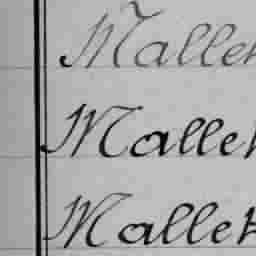 Mallet
Mallet
Mallet